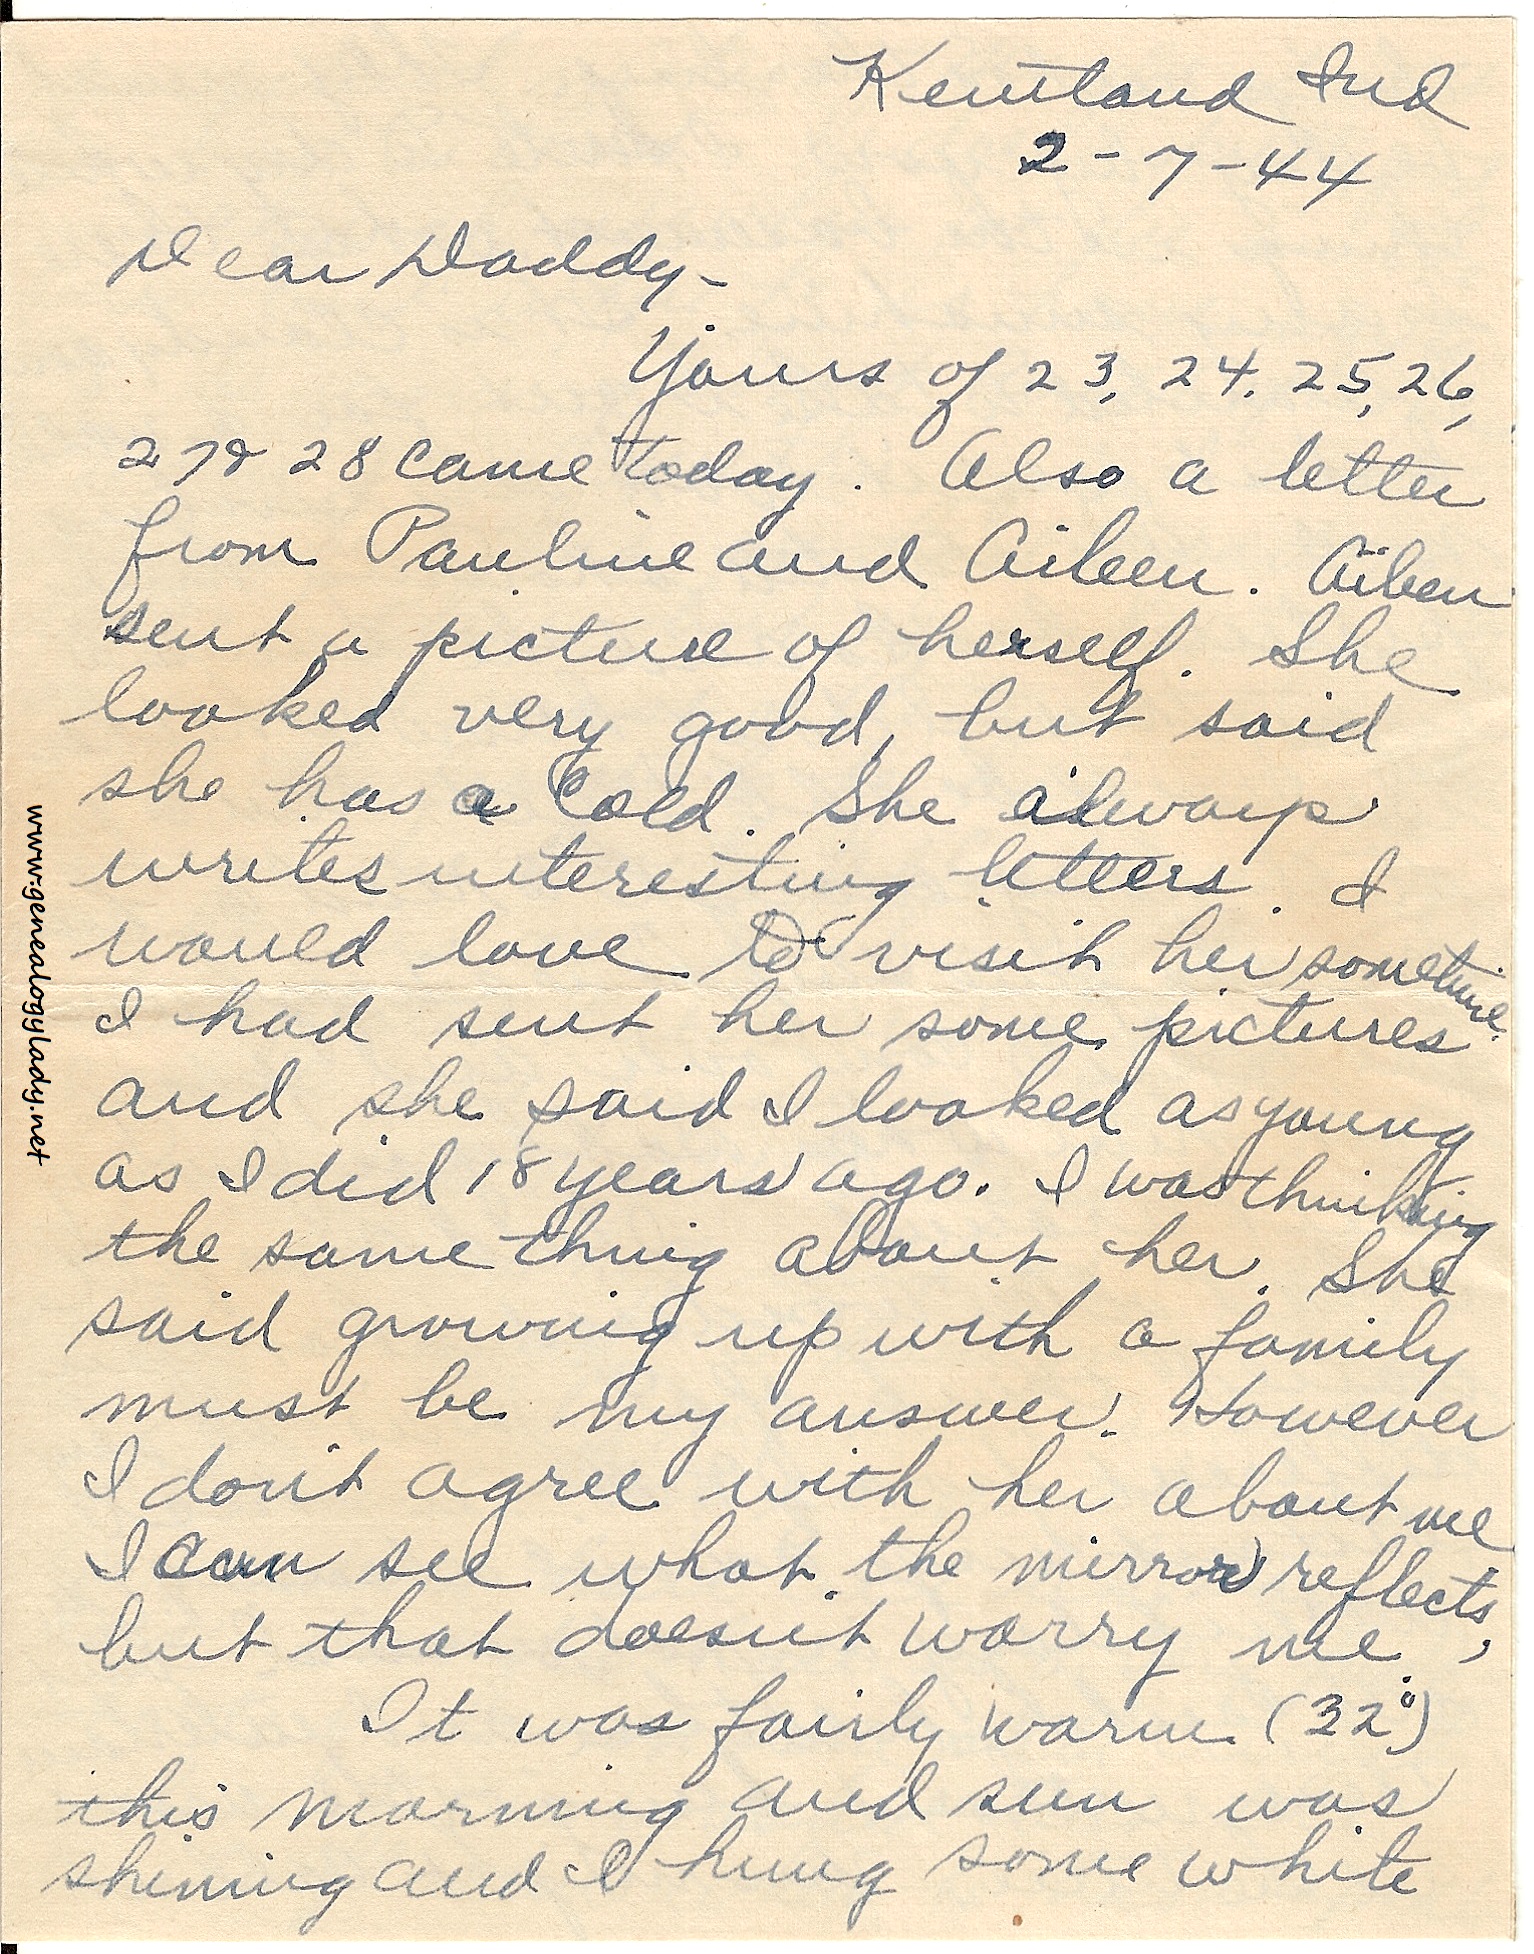 Kentland Ind
2-7-44
Dear Daddy-
Yours of 23, 24, 25, 26,
27 & 28 came today. Also a letter
from Pauline and Aileen. Aileen
sent a picture of herself. She
looked very good, but said
she has a cold. She always
writes interesting letters. I
would love to visit her sometime.
I had sent her some pictures
and she said I looked as young
as I did 18 years ago. I was thinking
the same thing about her. She
said growing up with a family
must be my answer. However
I don't agree with her about me
I can see what the mirror reflects,
but that doesn't worry me.
It was fairly warm (32°)
this morning and sun was
shining and I hung some white
www.genealogylady.net